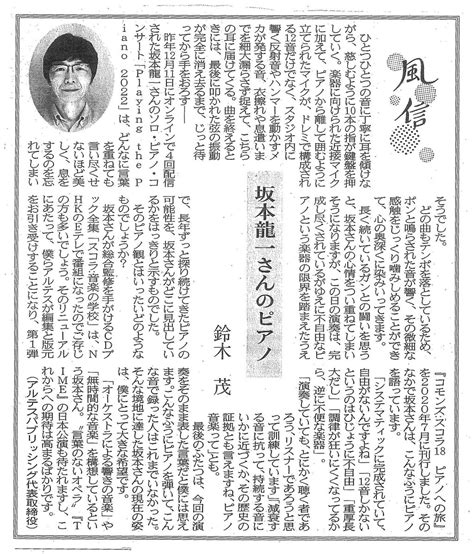 風信
ひとつひとつの音に丁寧に耳を傾けな
がら、慈しむように10本の指が鍵盤を押
していく。楽器に向けられた近接マイク
に加えて、ピアノから離して囲むように
立てられたマイクが、ドレミで構成され
る12音だけでなく、スタジオ内に
響く反射音やハンマーを動かすメ
カが発する音、衣擦れや息遣いま
で細大漏らさず捉えて、こちら
の耳に届けてくる。曲を終えると
きには、最後に叩かれた弦の振動
が完全に消え去るまで、じっと待
ってから手をおろす――
昨年12月11日にオンラインで4回配信
された坂本龍一さんのソロ・ピアノ・コ
ンサート「Playing the P
iano 2022」は、どんなに言葉
を重ねても
言い尽くせ
ないほど美
しく、息を
するのを忘
れてしまい
坂本龍一さんのピアノ
鈴木 茂
そうでした。
どの曲もテンポを落としているため、
ポンと鳴らされた音が響く、その微細な
感触をじっくり噛みしめることができ
て、心の奥深くに染みいってきます。
長く続いているガンとの闘いを思う
と、坂本さんの心情をつい重ねてしまい
そうになりますが、この日の演奏は、完
成し尽くされているがゆえに不自由なピ
アノという楽器の限界を踏まえたうえ
で、長年ずっと探り続けてきたピアノの
可能性を、坂本さんがどこに見出してい
るかをはっきりと示すものでした。
そのピアノ観とはいったいどのような
ものでしょうか？
坂本さんが総合監修を手がけるCDブ
ック全集「スコラ 音楽の学校」は、N
HKのEテレで番組になったのでご存じ
の方も多いでしょう。そのリニューアル
にあたって、僕らアルテスが編集と版元
をお引き受けすることになり、第1弾
『コモンズ・スコラ18 ピアノへの旅』
を2020年7月に刊行しました。その
なかで坂本さんは、こんなふうにピアノ
を語っています。
「システマティックに完成されていて、
自由がないんですよね」「12音しかない
というのはひじょうに不自由」「重厚長
大だし」「調律が狂いにくくなってるか
ら、逆に不便な楽器」。
「演奏していても、とにかく聴く者であ
ろう、リスナーであろうと思
って訓練しています」「減衰す
る音に抗って、持続する音に
いかに近づくか、その歴史の
証拠とも言えますね、ピアノ
音楽ってことも」
最後のふたつは、今回の演
奏をそのまま表した言葉だと僕には思え
ます。こんなふうにピアノを弾いて、こん
な音で録った人はこれまでいなかった。
そんな境地に達した坂本さんの現在の姿
は、僕にとって大きな希望です。
“オーケストラによる響きの音楽”や
「無時間的な音楽」を構想しているとい
う坂本さん。“音楽のないオペラ”『T
IME』の日本公演も待たれますし、こ
れからへの期待は高まるばかりです。
（アルテスパブリッシング代表取締役）